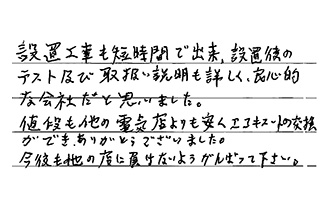 設置工事も短時間で出来、設置後の
テスト及び取扱い説明も詳しく、良心的
な会社だと思いました。
値段も他の電気店よりも安くエコキュートの交換
ができ、ありがとうございました。
今後も他の店に負けないようがんばって下さい。